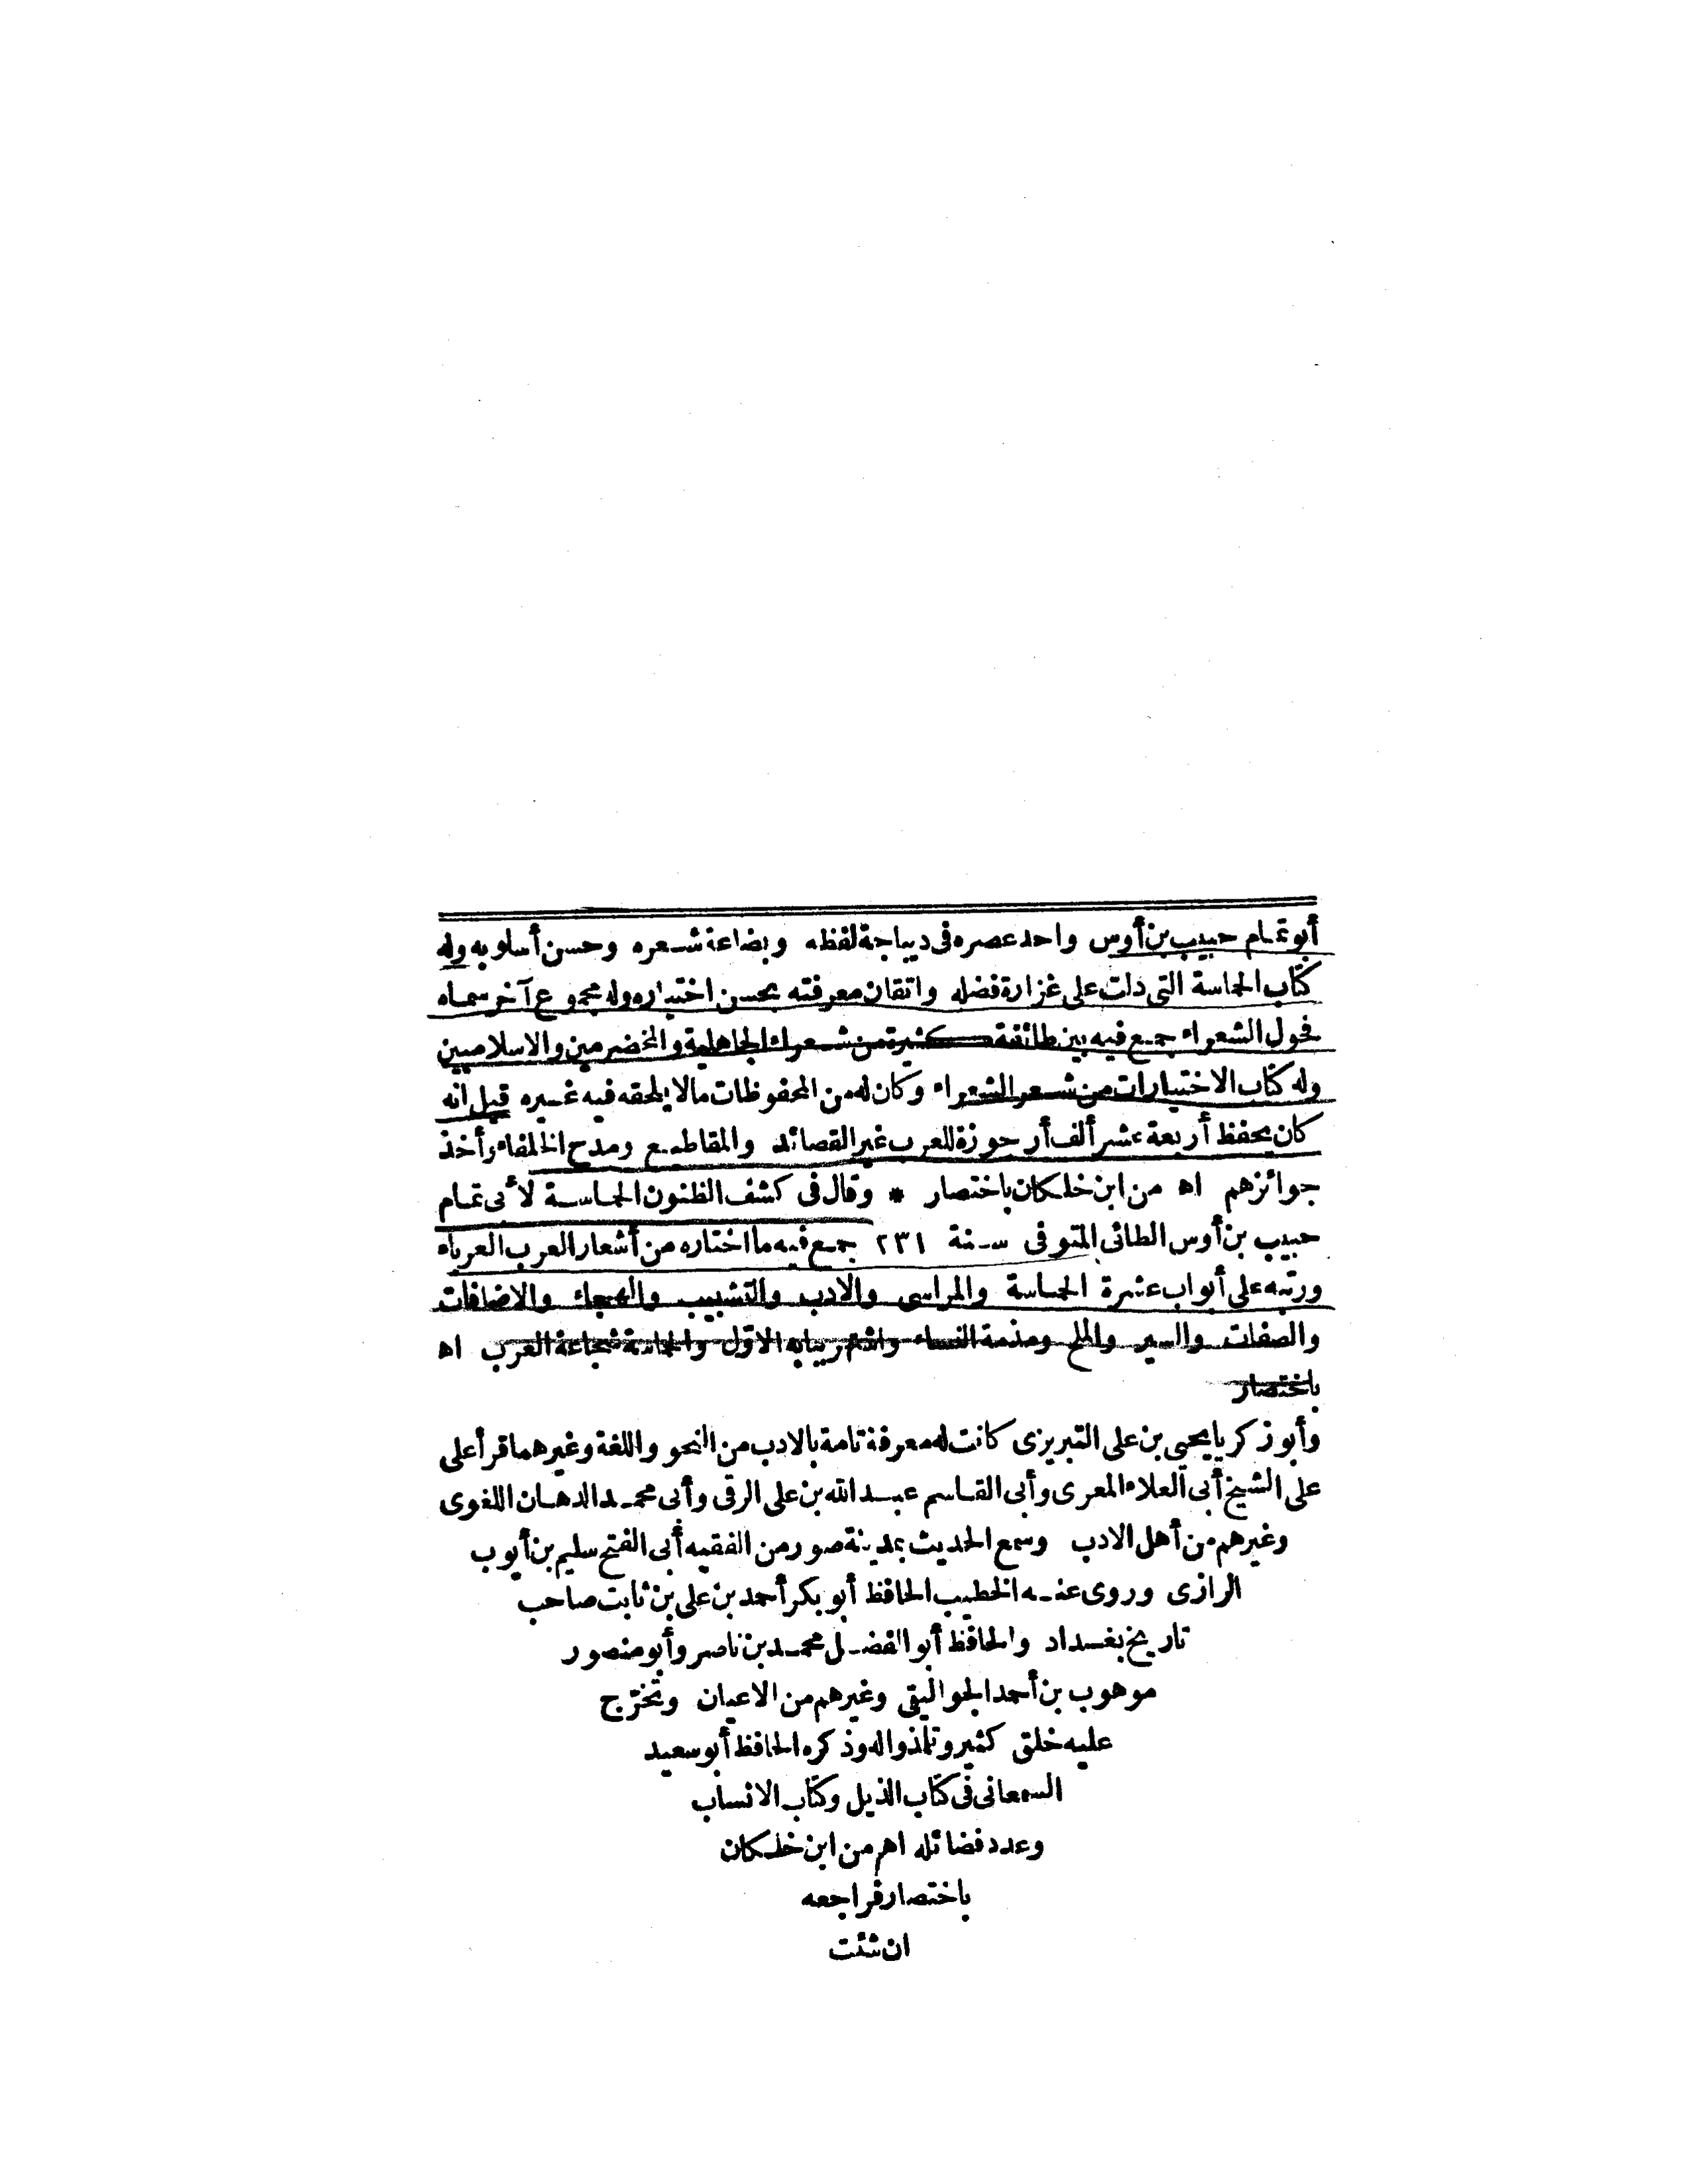 أبو تمام حبيب بن أوس واحد عصره فى ديباجة لفظه وبضاعة شعره وحسن أسلوبه وله
كتاب الحماسة التى دلت على غزارة فضله واتقان معرفته بحسن اختياره وله مجموع آخر سماه
فحول الشعراء جمع فيه بين طائفة كثيرة من شعراء الجاهلية والمخضرمين والاسلاميين
وله كتاب الاختيارات من شعر الشعراء وكان له من المحفوظات مالا يلحقه فيه غيره قيل انه
كان يحفظ أربعة عشر ألف أرجوزة للعرب غير القصائد والمقاطيع ومدح الخلفاء وأخذ
جوائزهم اه من ابن خلكان باختصار * وقال فى كشف الظنون الحماسة لأبى تمام
حبيب بن أوس الطائى المتوفى سنة ٢٣١ جمع فيه ما اختاره من أشعار العرب العرباء
ورتبه على أبواب عشرة الحماسة والمراسى والادب والتشبيب والهجاء والاضافات
والصفات والسير والملح ومذمة النساء واشتهر ببابه الاول والحماسة شجاعة العرب اه
باختصار
وأبو زكريا يحيى بن على التبريزى كانت له معرفة تامة بالادب من النحو واللغة وغيرهما قرأ على
على الشيخ أبى العلاء المعرى وأبى القاسم عبد الله بن على الرقى وأبى محمد الدهان اللغوى
وغيرهم من أهل الادب وسمع الحديث بمدينة صور من الفقيه أبى الفتح سليم بن أيوب
الرازى وروى عنه الخطيب الحافظ أبو بكر أحمد بن على بن ثابت صاحب
تاريخ بغداد والحافظ أبو الفضل محمد بن ناصر وأبو منصور
موهوب بن أحمد الجواليقى وغيرهم من الاعيان وتخرّج
عليه خلق كثير وتلمذوا له وذكره الحافظ أبو سعيد
السمعانى فى كتاب الذيل وكتاب الانساب
وعدد فضائله اهر من ابن خلكان
باختصار فراجعه
ان شئت